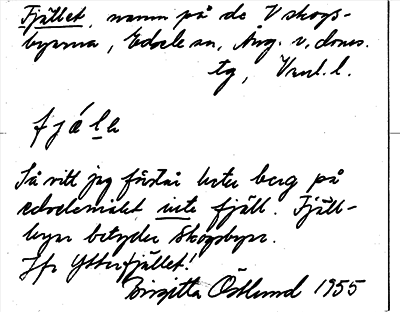 Fjället, namn på de V skogs-
byarna, Edsele sn, Ång. v. doms.
tg, Vnl. l.
fjäla
Så vitt jag förstår heter berg på
edselemålet inte fjäll. Fjäll-
byar betyder skogsbyar.
Jfr Ytterfjället!
Birgitta Östlund 1955